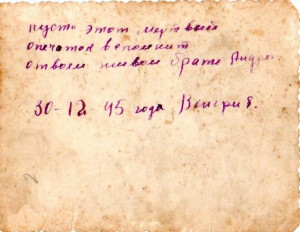 пусть этот мертвый
опечаток вспомнит
о твоем живом брате Андре.
30-12 45 года Венгрия.